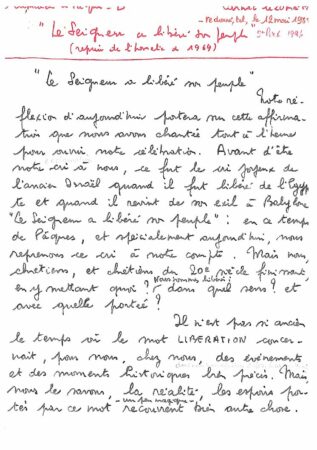 "Le Seigneur a libéré son peuple"
(reprise de l'homélie de 1969)
"Le Seigneur a libéré son peuple"
Notre ré-
flexion d'aujourd'hui portera sur cette affirma-
tion que nous avons chantée tout à l'heure
pour ouvrir notre célébration. Avant d'être
notre cri à nous, ce fut le cri joyeux de
l'ancien Israël quand il fut libéré de l'Egyp-
te et quand il revint de son exil à Babylone
"Le Seigneur a libéré son peuple" : en ce temps
de Pâques, et spécialement aujourd'hui, nous
reprenons ce cri à notre compte. Mais nous,
chrétiens, et chrétiens du 20e siècle finissant
en y mettant quoi ? dans quel sens ? et
avec quelle portée ?
Il n'est pas si ancien
le temps où le mot LIBERATION concer-
nait, pour nous, chez nous, des événements
et des moments historiques très précis. Mais
nous le savons, la réalité, les espoirs por-
tés par ce mot recouvrent bien autre chose.